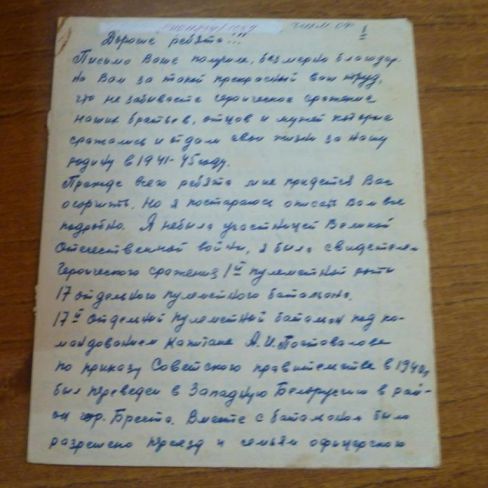 I
Дорогие ребята!!!
Письмо Ваше получила, безмерно благодар-
на Вам за такой прекрасный ваш труд,
что не забываете героическое сражение
наших братьев, отцов и мужей которые
сражались и отдали свои жизни за нашу
родину в 1941-45 году.
Прежде всего ребята мне придется Вас
огорчить. Но я постараюсь описать Вам все
подробно. Я небыла участницей Великой
Отечественной войны, я была свидетелем
героического сражения 1й пулеметной роты
17 отдельного пулеметного батальона.
17й отдельный пулеметный батальон под ко-
мандованием капитана А.И. Постовалова
по приказу Советского правительства в 1940г
был переведен в Западную Белоруссию в рай-
он гор. Бреста. Вместе с батальоном было
разрешено переезд и семьям офицерского